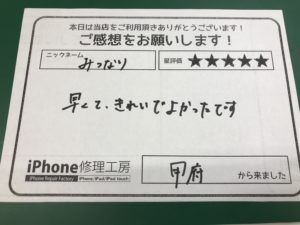 本日は当店をご利用頂きありがとうございます!
ご感想をお願いします!
ニックネーム
みつなり
星評価 ★★★★★
早くて、きれいでよかったです
iPhone修理工房
iPhone Repair Factory iPhone/iPad/iPod touch
甲府 から来ました